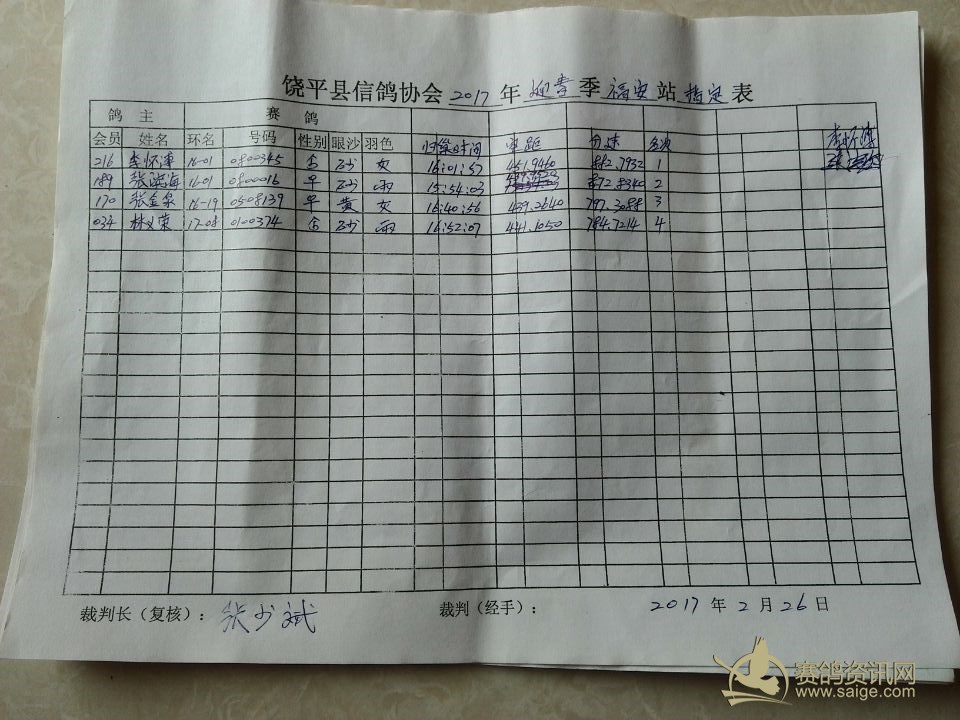 饶平县信鸽协会 2017 年 迎春 季 福安 站 指定 表
鸽 主 赛 鸽
会员 姓名 环名 号码 性别 眼沙 羽色 归巢时间 空距 分速 名次
216 李怀泽 16-01 0800345 砂 16:01:57 451.9460 1
189 16-01 0800016 砂 雨 15:54:03 872.8340 2
170 张金泉 16-19 0508139 黄 16:40:56 439.2640 797.3088 3
034 林义荣 17-08 0100374 砂 雨 16:52:07 441.1050 784.7214 4
裁判长（复核）： 张少斌 裁判（经手）： 2017 年 2 月 26 日
赛鸽资讯网
www.saige.com